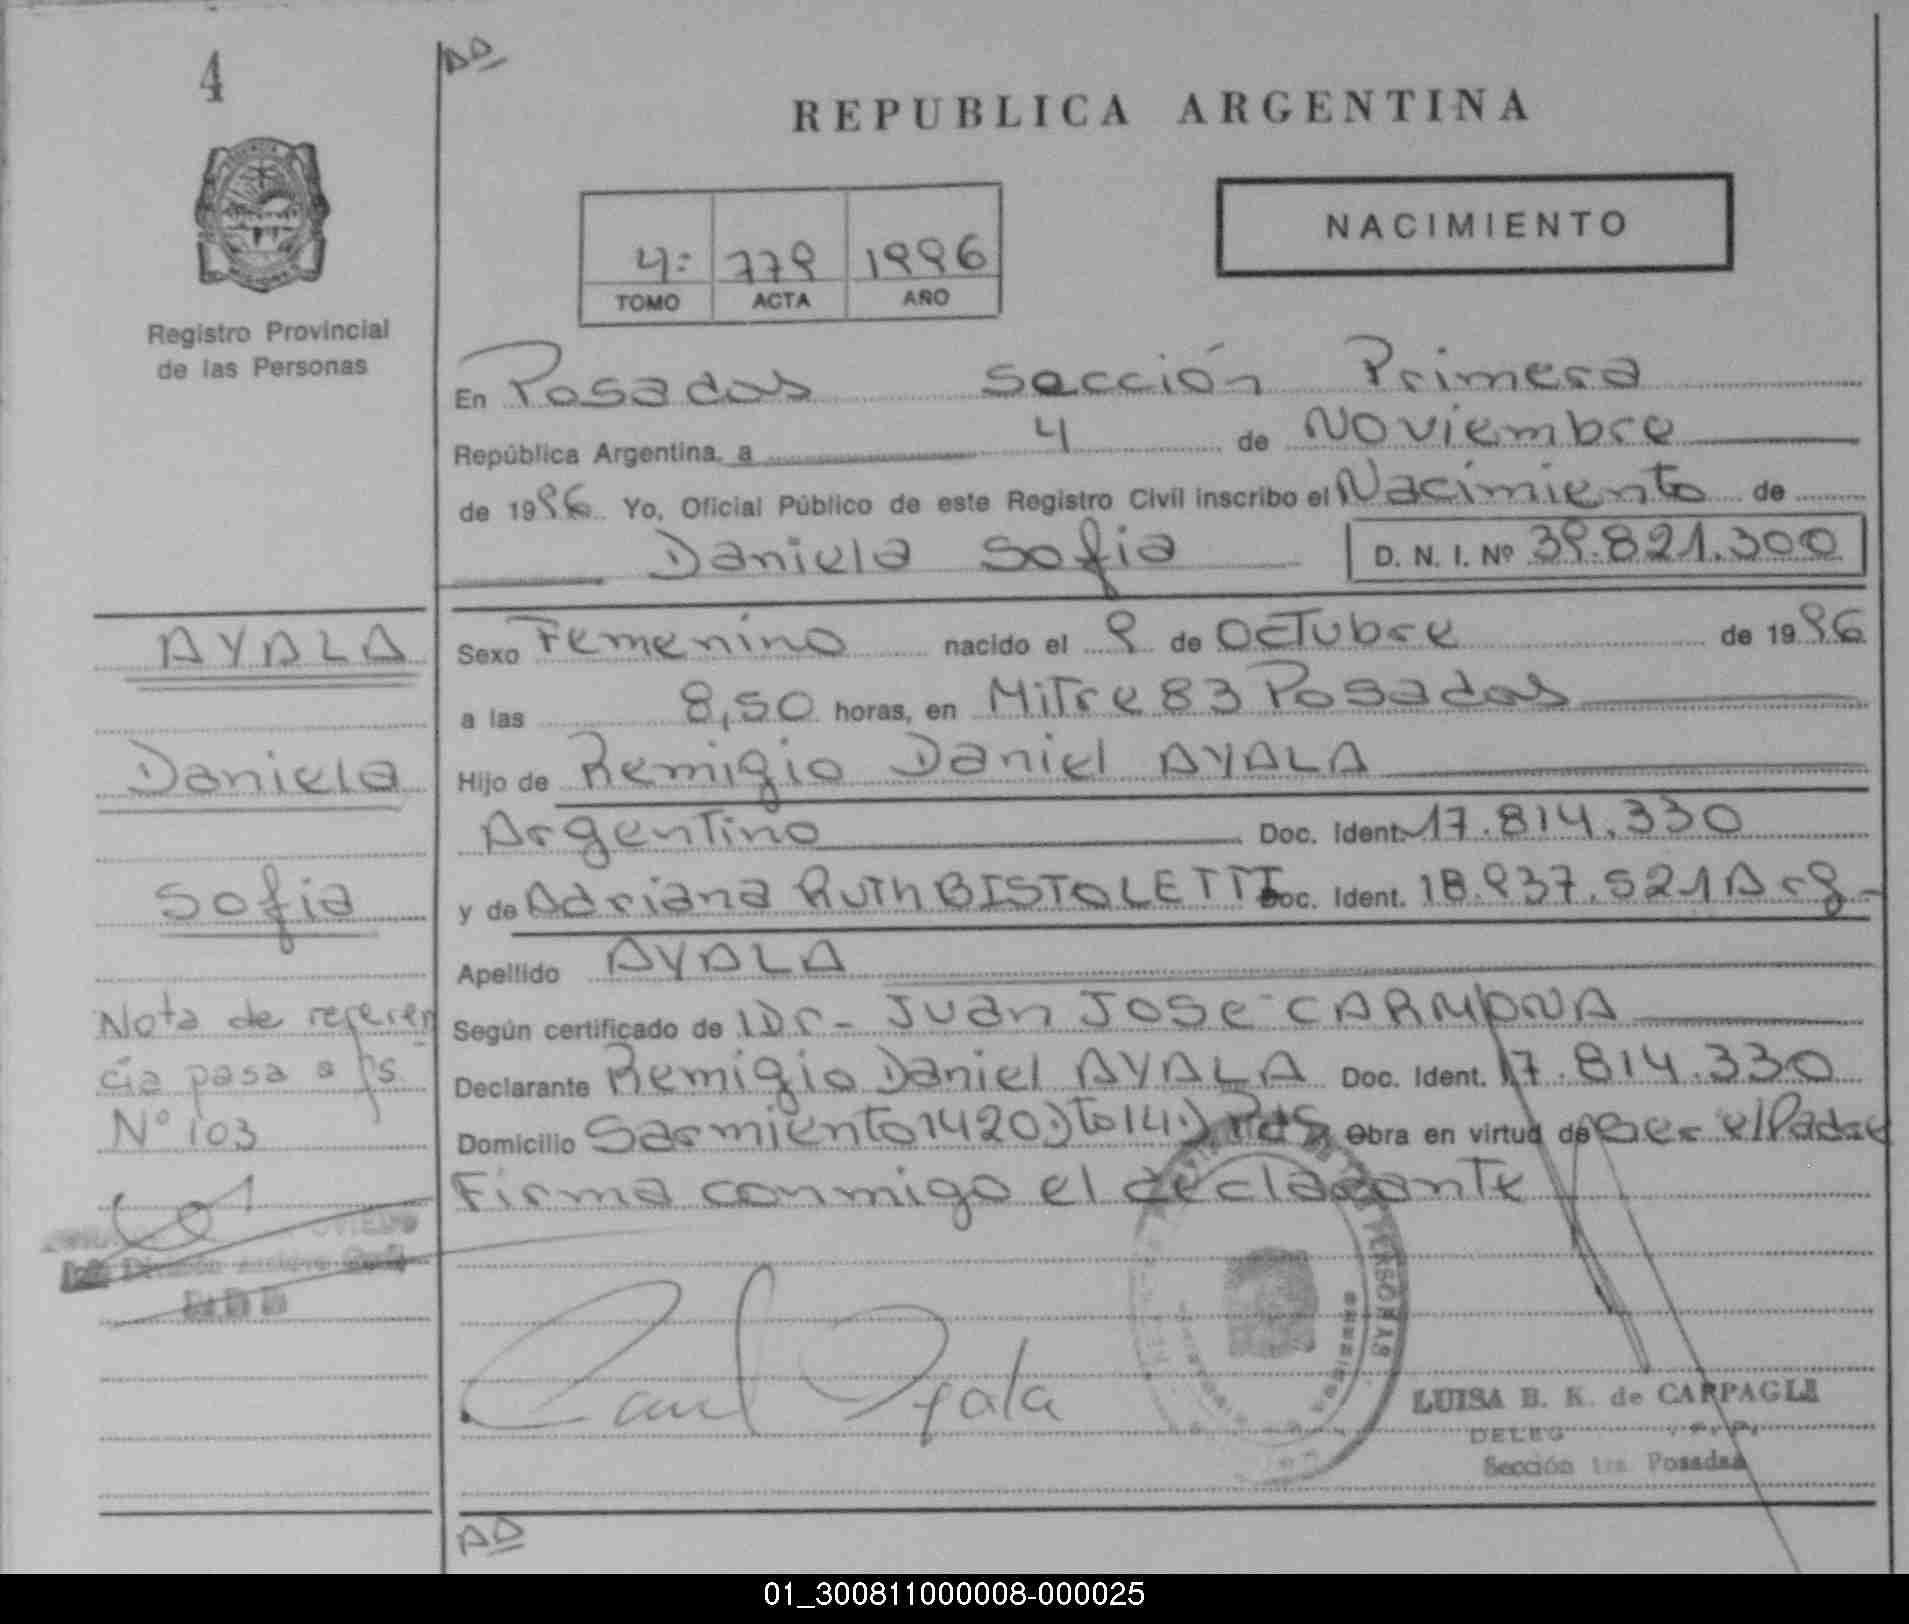 4
AD
REPUBLICA ARGENTINA
NACIMIENTO
4: 779 1996
TOMO ACTA AÑO
Registro Provincial
de las Personas
En Posadas Sección Primera
República Argentina, a 4 de Noviembre
de 1996 Yo, Oficial Público de este Registro Civil inscribo el Nacimiento de
Daniela Sofia D. N. I. Nº 39.821.300
AYALA
Daniela
Sofia
Nota de referen
cia pasa a fs
Nº 103
Sexo Femenino nacido el 9 de Octubre de 1996
a las 8,50 horas, en Mitre 83 Posadas
Hijo de Remigio Daniel AYALA
Argentino Doc. Ident. 17.814.330
y de Adriana Ruth BISTOLETTI Doc. Ident. 18.937.521 Arg-
Apellido AYALA
Según certificado de Dr- Juan Jose CARMONA
Declarante Remigio Daniel AYALA Doc. Ident. 17.814.330
Domicilio Sarmiento 1420 Dto 14 Pdas Obra en virtud de Ser el Padre
Firma conmigo el declarante
División Archivo
Daniel Ayala
PERSONAS
LUISA B. K. de CARPAGLI
DELEG
Sección 1ra Posadas
AD
01_300811000008-000025